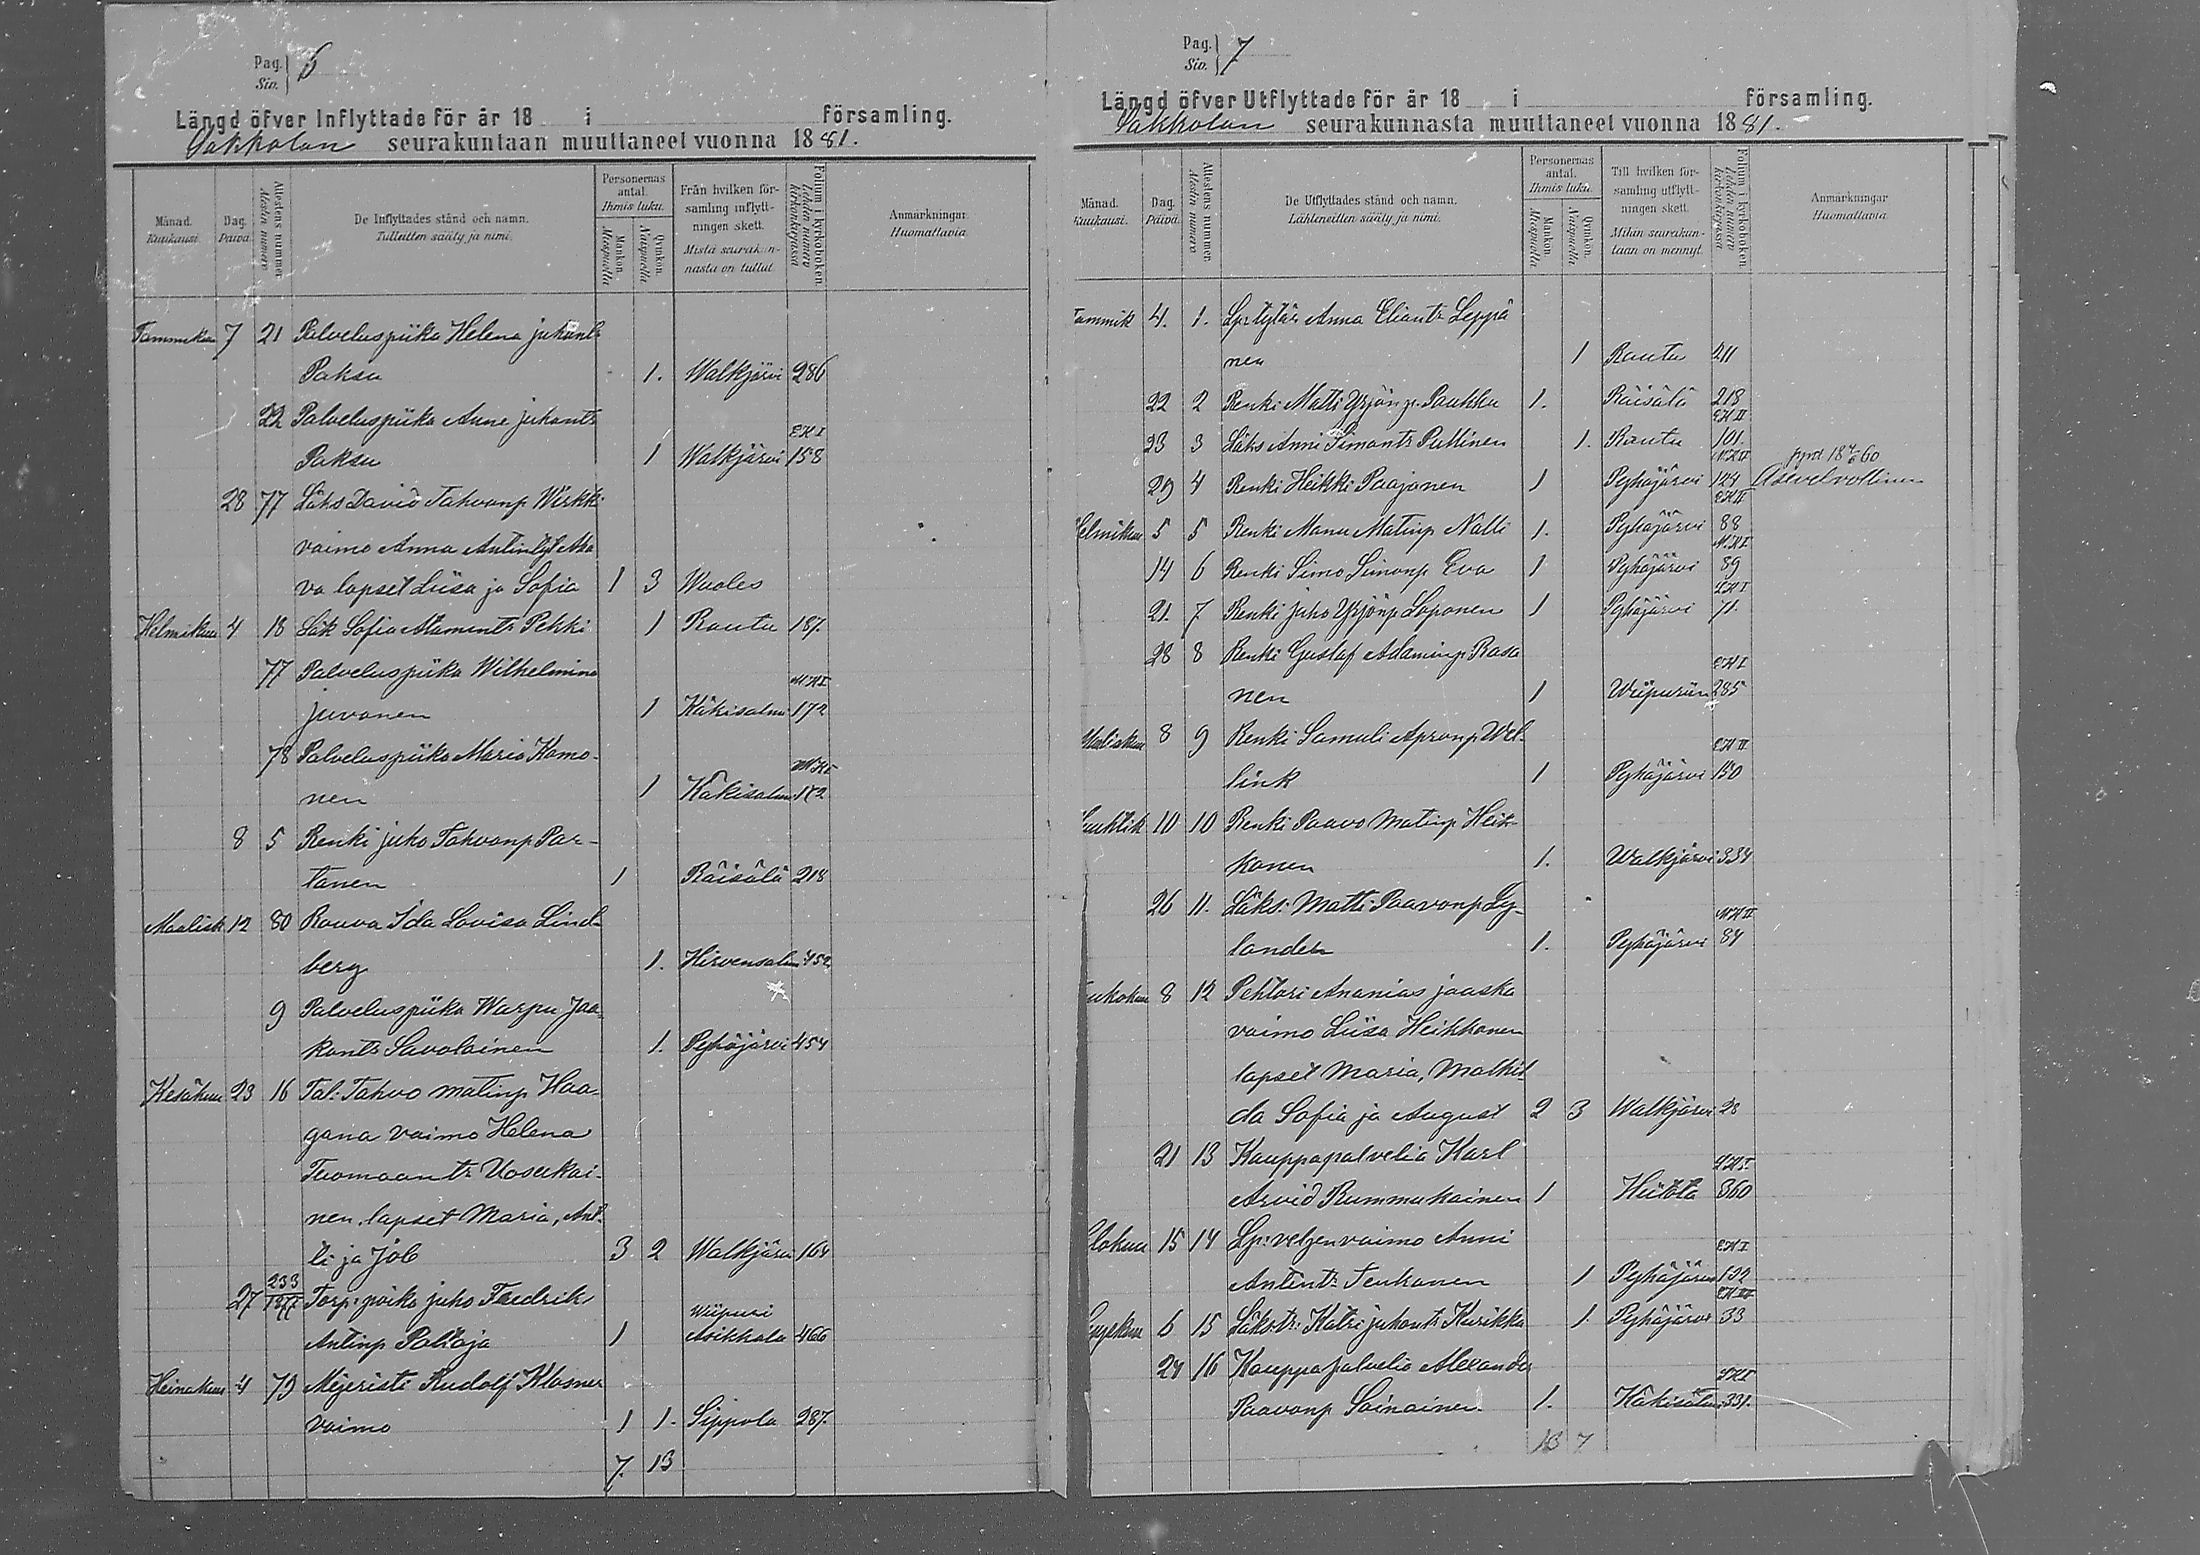 Pag. 6
Siv.
Längd öfver Inflyttade för år 18 i församling.
Sakkolan seurakuntaan muuttaneet vuonna 1881.
Månad. Kuukausi.
Dag. Päivä.
Attestens nummer. Atestin numero
De Inflyttades stånd och namn.
Tulleitten sääty ja nimi.
Personernas antal. Ihmis luku.
Mankön. Miespuolia
Qvinkön. Naispuolia
Från hvilken församling inflyttningen skett.
Mistä seurakunnasta on tullut.
Folium i kyrkoboken Lehden numero kirkonkirjassa
Anmärkningar.
Huomattavia.
Tammikuu 7 21 Palveluspiika Helena juhant.
Paksu 1. Walkjärvi 286
22 Palveluspiika Anna juhantr
EK I
Paksu 1 Walkjärvi 158
28 77 Läks David Tahvanp Wirkki
vaimo Anna Antintyt Aka
va lapset Liisa ja Sofia 1 3 Wuoles
Helmikuu 4 18 Läk Sofia Atamintr Pekki 1 Rautu 187.
77 Palveluspiika Wilhelmina
MK I
juvonen 1 Käkisalmi 172
78 Palveluspiika Maria Komo-
nen 1 Käkisalmi 172
8 5 Renki juho Tahvanp Par-
tanen 1 Räisälä 218
Maalisk 12 80 Rouva Ida Lovisa Lind-
berg 1. Hirvensalmi 452
9 Palveluspiika Warpu Jaa-
kontr Savolainen 1. Pyhäjärvi 454
Kesäkuu 23 16 Tal: Tahvo matinp Haa-
gana vaimo Helena
Tuomaantr Vosukai-
nen, lapset Maria, Ant-
ti ja Job 3 2 Walkjärvi 164
27 233/1377 Torp: poika juho Fredrik
Wiipuri
Antinp Paltaja 1 Asikkala 466
Heinäkuu 4 79 Mejeristi Rudolf Klasner
vaimo 1 1. Sippola 287.
7. 13
Pag. 7
Siv.
Längd öfver Utflyttade för år 18 i församling.
Sakkolan seurakunnasta muuttaneet vuonna 1881.
Månad. Kuukausi.
Dag. Päivä.
Attestens nummer. Atestin numero
De Utflyttades stånd och namn.
Lähteneitten sääty ja nimi.
Personernas antal. Ihmis luku.
Mankön. Miespuolia
Qvinkön. Naispuolia
Till hvilken församling utflyttningen skett.
Mihin seurakuntaan on mennyt.
Folium i kyrkoboken Lehden numero kirkonkirjassa
Anmärkningar
Huomattavia
Tammik 4. 1. Lp: tytär Anna Eliantr Leppä
nen 1 Rautu 211
22 2 Renki Matti Yrjönp. Paukku 1. Räisälä 218
EK II
23 3 Läks Anni Simontr Pullinen 1. Rautu 101.
MK II
29 4 Renki Heikki Paajanen 1 Pyhäjärvi 124 Asevelvollinen
EK II
Helmikuu 5 5 Renki Manu Matinp Nalli 1. Pyhäjärvi 88
MK I
14 6 Renki Simo Simonp Eva 1 Pyhäjärvi 89
EK I
21. 7. Renki juho Yrjönp Loponen 1 Pyhäjärvi 71.
28 8 Renki Gustaf Adaminp Rasa
EK I
nen 1 Wiipuriin 285
Maaliskuu 8 9 Renki Samuli Apronp Wel-
EK II
link 1 Pyhäjärvi 150
Huhtik 10 10 Renki Paavo Matinp Heik-
konen 1. Walkjärvi 334
26 11. Läks: Matti Paavonp Ly-
MK II
lander 1. Pyhäjärvi 84
Toukokuu 8 12 Pehtori Ananias jaaska
vaimo Liisa Heikkonen
lapset Maria, Mathil-
da Sofia ja August 2 3 Walkjärvi 28
21 13 Kauppapalvelia Karl
Arvid Rummukainen 1 Hiitola 360
Elokuu 15 14 Lp: veljen vaimo Anni
EK I
Antintr Teukanen 1 Pyhäjärvi 192
EK III
Syyskuu 6 15 Läks: tr: Katri juhontr Kurikka 1. Pyhäjärvi 33
24 16 Kauppapalvelia Alexander
Paavonp Soinainen. 1. Käkisalmi 331.
13 7